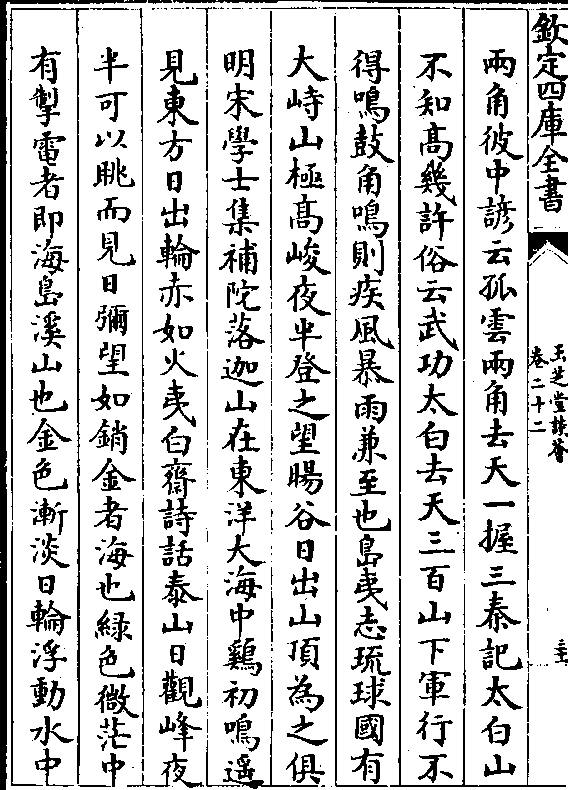 欽定四庫全書
玉芝堂談薈
卷二十二
兩角彼中諺云孤雲兩角去天一握三秦記太白山
不知髙幾許俗云武功太白去天三百山下軍行不
得鳴鼓角鳴則疾風暴雨兼至也島夷志琉球國有
大崎山極髙峻夜半登之望暘谷日出山頂為之俱
明宋學士集補陀落迦山在東洋大海中鷄初鳴遥
見東方日出輪赤如火夷白齋詩話泰山日觀峰夜
半可以眺而見日彌望如銷金者海也緑色微茫中
有掣電者即海島溪山也金色漸淡日輪浮動水中